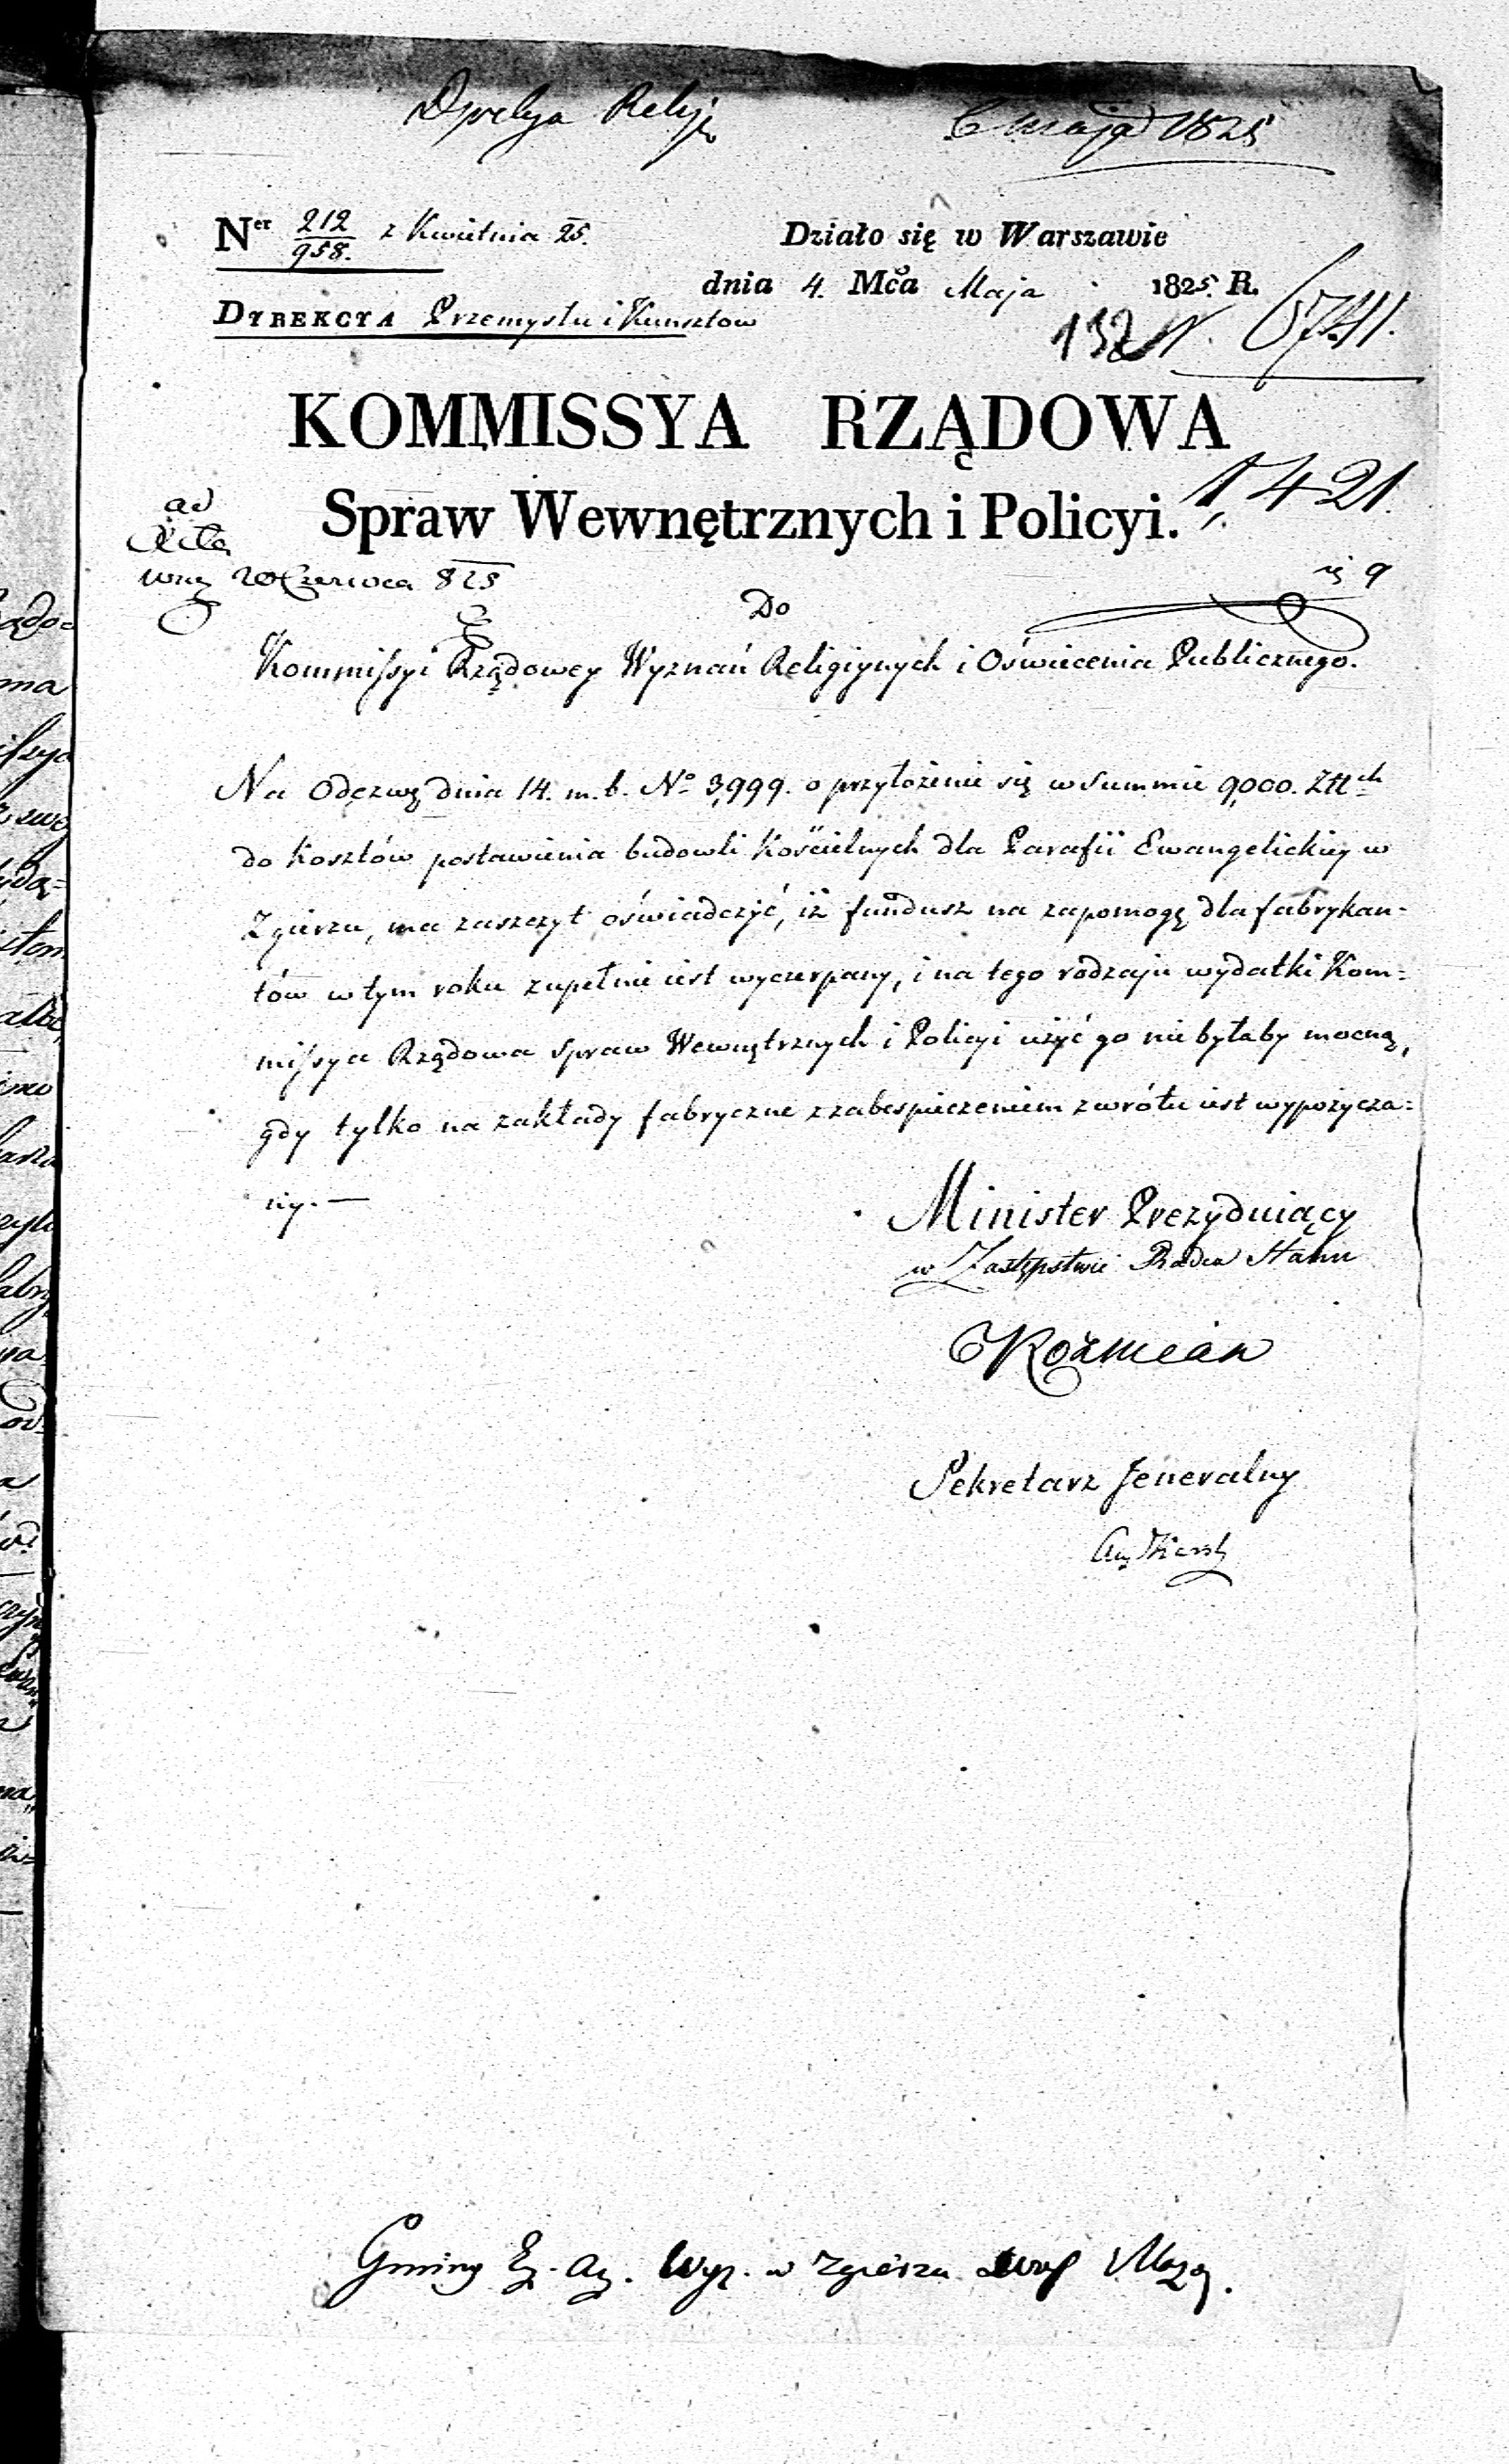 6 maja 1825
Ner 212/958. z Kwietnia 25.
Działo się w Warszawie
dnia 4. Mca Maja 1825. R.
DYREKCYA Przemysłu i Kunsztow
6741.
KOMMISSYA RZĄDOWA
Spraw Wewnętrznych i Policyi.
1,421.
ad
20 Czerwca 825
Do
Kommissyi Rządowey Wyznań Religiynych i Oświecenia Publicznego.
Na Odezwę dnia 14. m. b. No 3,999. o przyłożenie się w Summie 9,000. Złtch
do kosztów postawienia budowli Kościelnych dla Parafii Ewangelickiey w
Zgierzu, ma zaszczyt oświadczyć, iż fundusz na zapomogę dla fabrykan-
tów w tym roku zupełnie iest wyczerpany, i na tego rodzaju wydatki Kom-
missya Rządowa Spraw Wewnętrznych i Policyi użyć go nie byłaby mocną,
gdy tylko na zakłady fabryczne z zabespieczeniem zwrótu iest wypożycza-
ny. —
Minister Prezyduiący
w Zastępstwie Radca Stanu
Koźmian
Sekretarz Jeneralny
Gminy Ew. Aug. Wyz. w Zgierzu Maz.